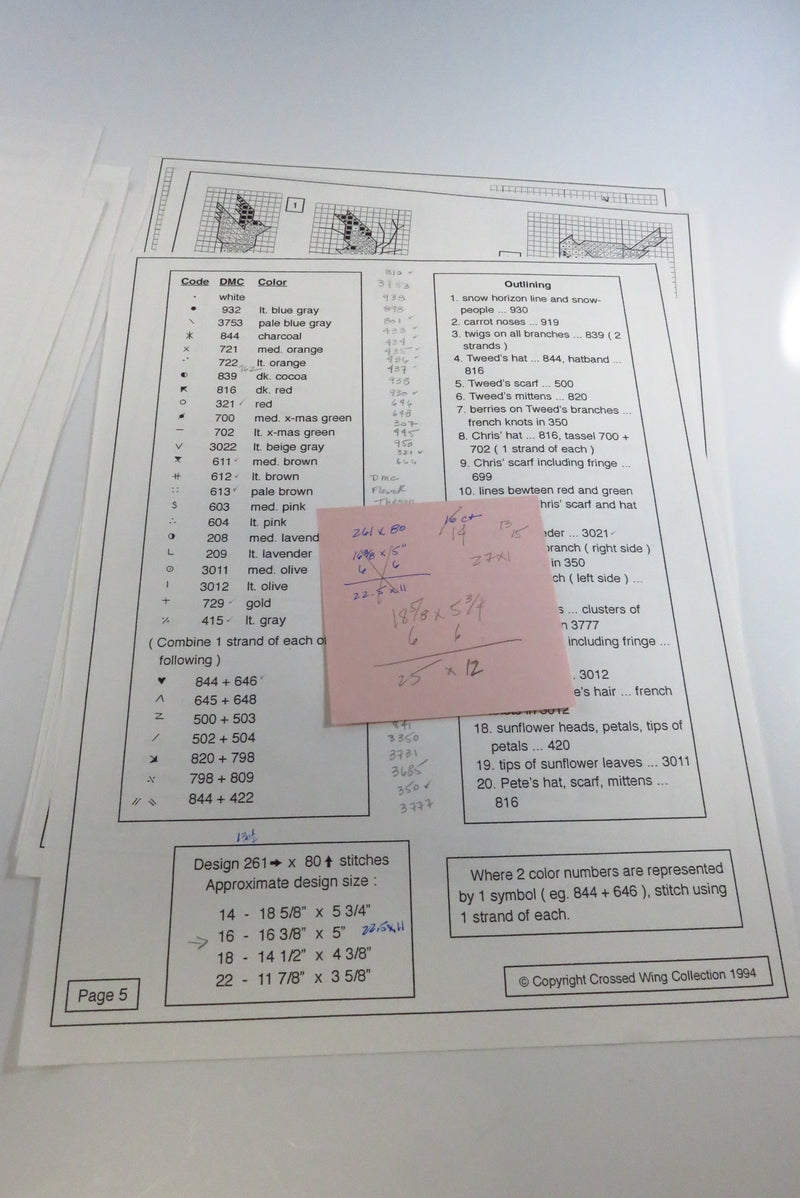 1
Code DMC Color
white
932 lt. blue gray
3753 pale blue gray
844 charcoal
721 med. orange
722 lt. orange
839 dk. cocoa
816 dk. red
321 ✓ red
700 med. x-mas green
702 lt. x-mas green
3022 lt. beige gray
611 ✓ med. brown
612 ✓ lt. brown
613 ✓ pale brown
S 603 med. pink
604 lt. pink
208 med. lavend
L 209 lt. lavender
3011 med. olive
3012 lt. olive
+ 729 ✓ gold
415 ✓ lt. gray
( Combine 1 strand of each o
following )
♥ 844 + 646
645 + 648
500 + 503
/ 502 + 504
820 + 798
798 + 809
// 844 + 422
310 ✓
3753
938
898
801 ✓
433 ✓
434 ✓
435 ✓
436 ✓
437 ✓
938
930 ✓
646
648
307
445
950
321 ✓
666
DMC
Flower
Thread
3350
3731
3685
350 ✓
3777
Outlining
1. snow horizon line and snow-
people ... 930
2. carrot noses ... 919
3. twigs on all branches ... 839 ( 2
strands )
4. Tweed's hat ... 844, hatband ...
816
5. Tweed's scarf ... 500
6. Tweed's mittens ... 820
7. berries on Tweed's branches ...
french knots in 350
8. Chris' hat ... 816, tassel 700 +
702 ( 1 strand of each )
9. Chris' scarf including fringe ...
699
10. lines bewteen red and green
hris' scarf and hat
der ... 3021
ranch ( right side )
in 350
ch ( left side ) ...
s ... clusters of
n 3777
including fringe ...
. 3012
e's hair ... french
knots in 3012
18. sunflower heads, petals, tips of
petals ... 420
19. tips of sunflower leaves ... 3011
20. Pete's hat, scarf, mittens ...
816
261 x 80
16 ct
14
13
15
16 3/8 x 5"
6 6
22.5 x 11
27 x 1
18 5/8 x 5 3/4
6 6
25 x 12
130½
Design 261➔ x 80⬆ stitches
Approximate design size :
14 - 18 5/8" x 5 3/4"
16 - 16 3/8" x 5" 22.5 x 11
18 - 14 1/2" x 4 3/8"
22 - 11 7/8" x 3 5/8"
Where 2 color numbers are represented
by 1 symbol ( eg. 844 + 646 ), stitch using
1 strand of each.
Page 5
© Copyright Crossed Wing Collection 1994